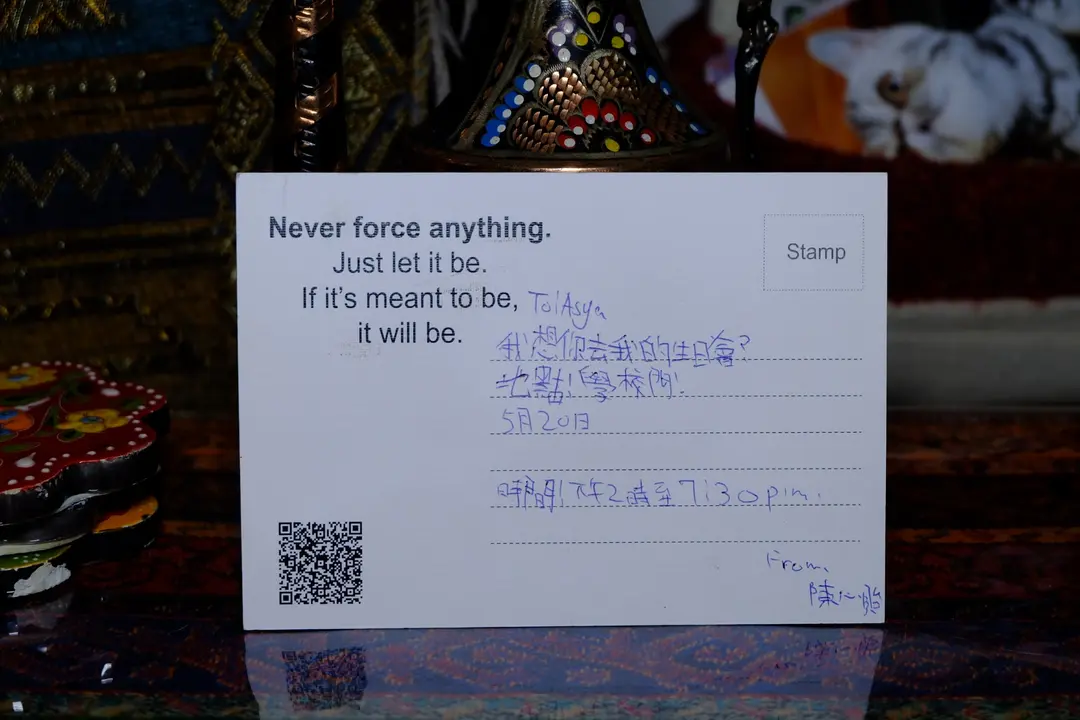 Never force anything.
Just let it be.
If it's meant to be,
it will be.
Stamp
To!Asya
我想你去我的生日會?
地點!學校門!
5月20日
時間!下午2時至7:30p.m.
From.
陳心怡